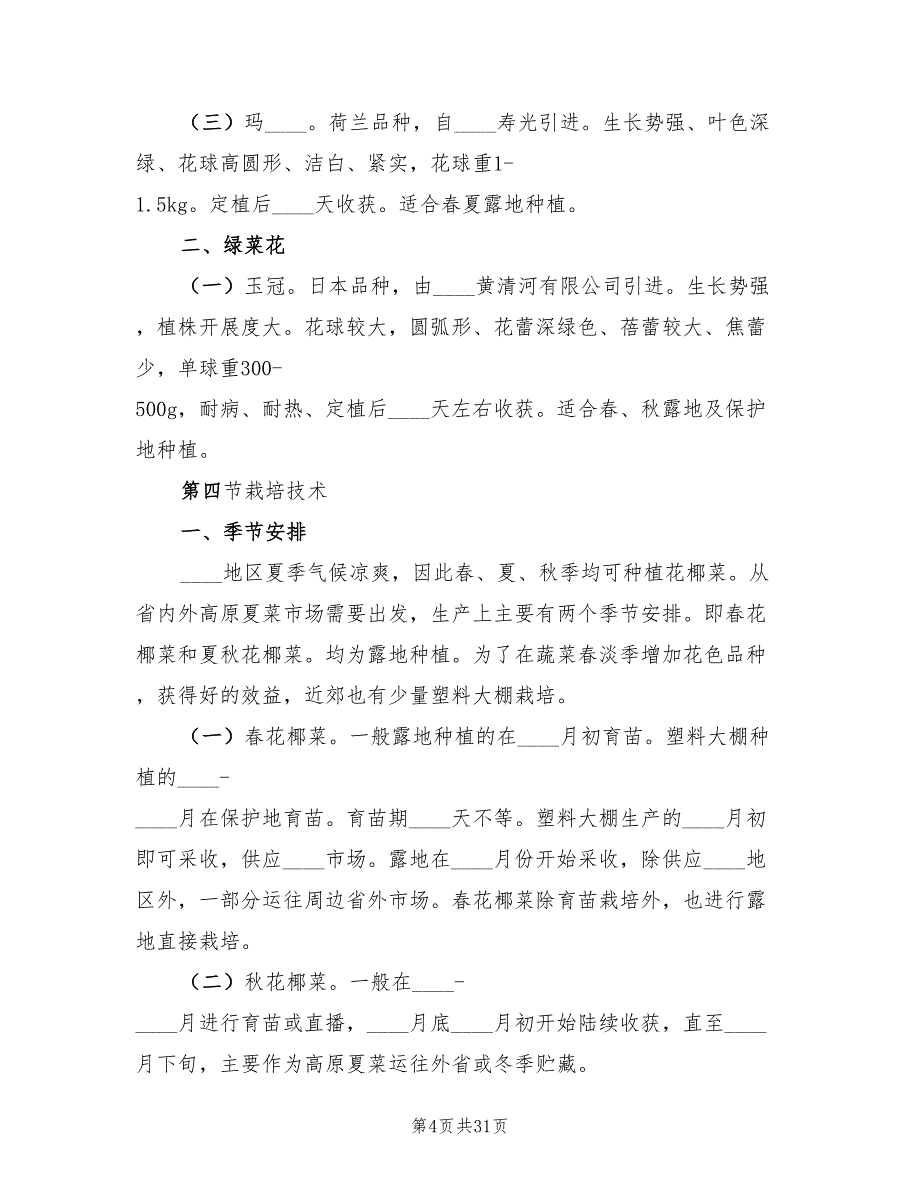 （三）玛____。荷兰品种，自____寿光引进。生长势强、叶色深
绿、花球高圆形、洁白、紧实，花球重1-
1.5kg。定植后____天收获。适合春夏露地种植。
二、绿菜花
（一）玉冠。日本品种，由____黄清河有限公司引进。生长势强
，植株开展度大。花球较大，圆弧形、花蕾深绿色、蓓蕾较大、焦蕾
少，单球重300-
500g，耐病、耐热、定植后____天左右收获。适合春、秋露地及保护
地种植。
第四节栽培技术
一、季节安排
____地区夏季气候凉爽，因此春、夏、秋季均可种植花椰菜。从
省内外高原夏菜市场需要出发，生产上主要有两个季节安排。即春花
椰菜和夏秋花椰菜。均为露地种植。为了在蔬菜春淡季增加花色品种
，获得好的效益，近郊也有少量塑料大棚栽培。
（一）春花椰菜。一般露地种植的在____月初育苗。塑料大棚种
植的____-
____月在保护地育苗。育苗期____天不等。塑料大棚生产的____月初
即可采收，供应____市场。露地在____月份开始采收，除供应____地
区外，一部分运往周边省外市场。春花椰菜除育苗栽培外，也进行露
地直接栽培。
（二）秋花椰菜。一般在____-
____月进行育苗或直播，____月底____月初开始陆续收获，直至____
月下旬，主要作为高原夏菜运往外省或冬季贮藏。
第4页共31页